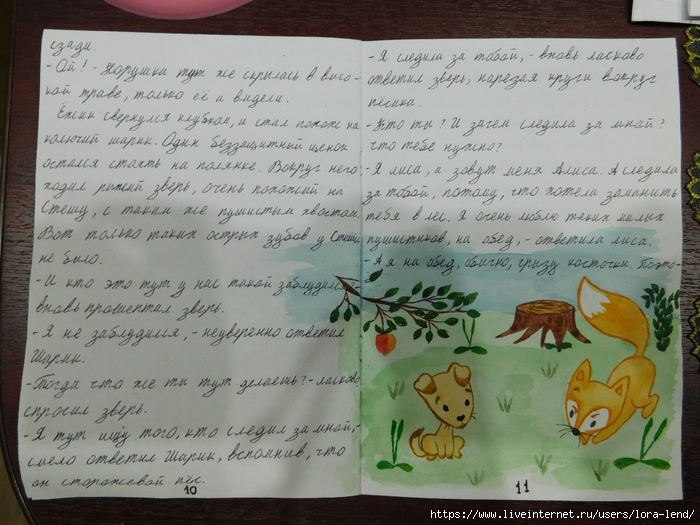 сзади.
- Ой! - Норушка тут же скрылась в высо-
кой траве, только её и видели.
Ёжик свернулся клубком, и стал похож на
колючий шарик. Один беззащитный щенок
остался стоять на полянке. Вокруг него
ходил рыжий зверь, очень похожий на
Стешу, с таким же пушистым хвостом.
Вот только таких острых зубов у Стеши
не было.
- И кто это тут у нас такой заблудился? -
вновь прошептал зверь.
- Я не заблудился, - неуверенно ответил
Шарик.
- Тогда что же ты тут делаешь? - ласково
спросил зверь.
- Я тут ищу того, кто следил за мной, -
смело ответил Шарик, вспомнив, что
он сторожевой пёс.
10
- Я следила за тобой, - вновь ласково
ответил зверь, нарезая круги вокруг
пёсика.
- Кто ты? И зачем следила за мной?
Что тебе нужно?
- Я лиса, а зовут меня Алиса. А следила
за тобой, потому, что хотела заманить
тебя в лес. Я очень люблю таких милых
пушистиков, на обед, - ответила лиса.
- А я на обед, обычно, грызу косточки. Поэто-
11
https://www.liveinternet.ru/users/lora-lend/